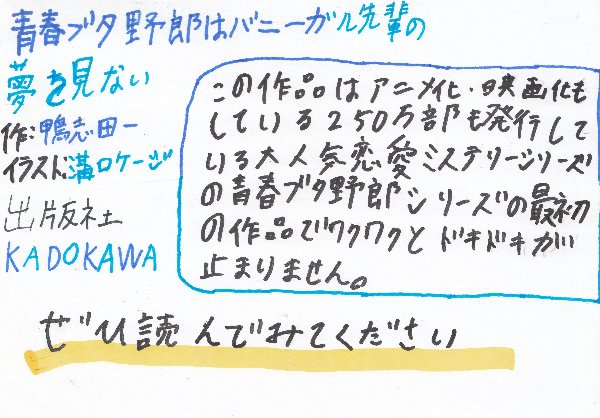 青春ブタ野郎はバニーガル先輩の
夢を見ない
作:鴨志田一
イラスト:溝口ケージ
出版社
KADOKAWA
この作品はアニメ化・映画化も
している250万部も発行して
いる大人気恋愛ミステリーシリーズ
の青春ブタ野郎シリーズの最初
の作品でワクワクとドキドキが
止まりません。
ぜひ読んでみてください